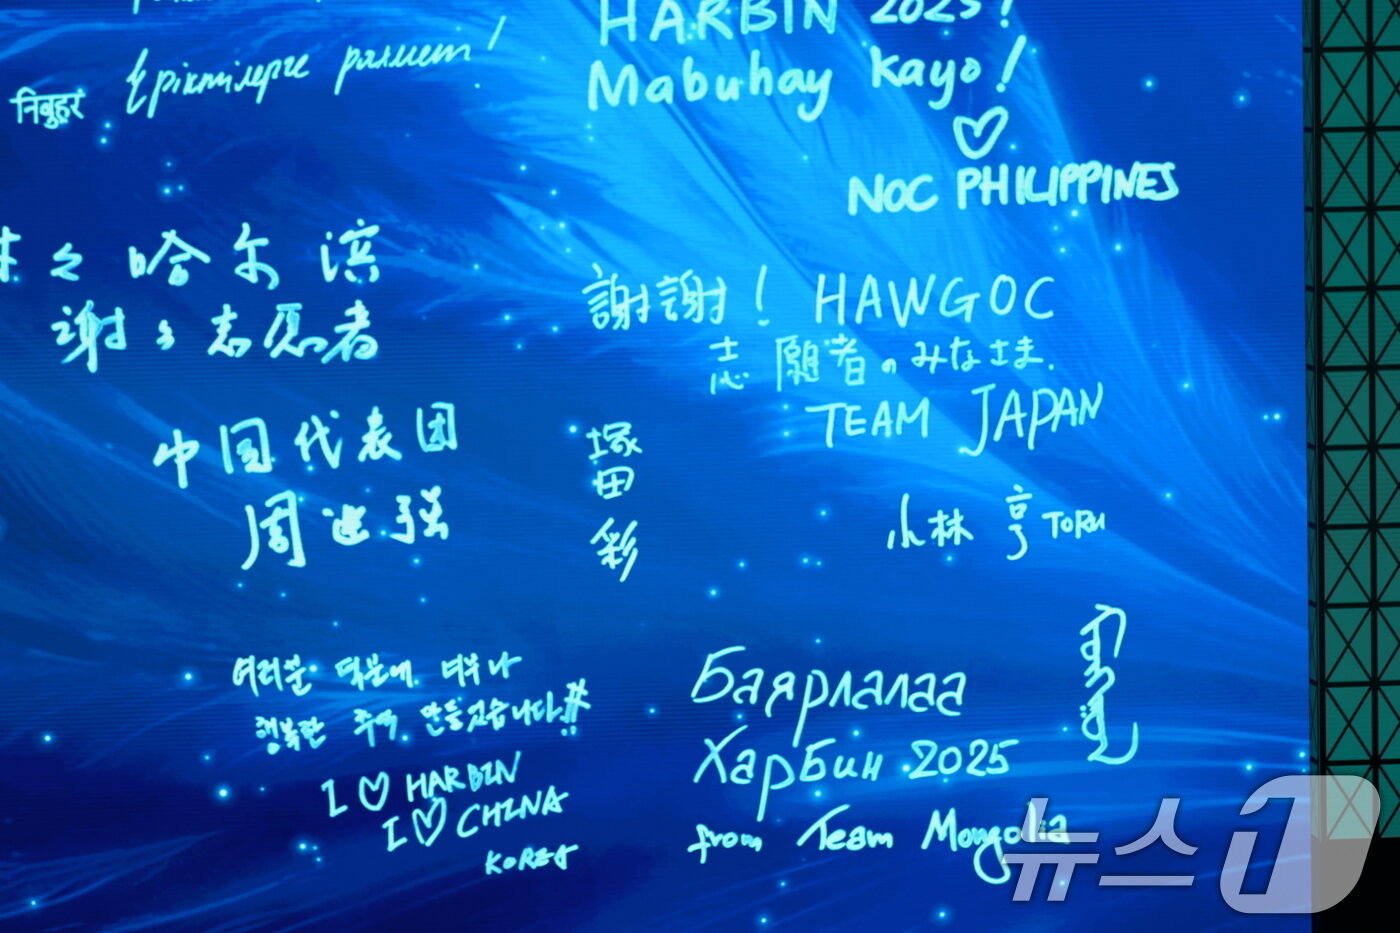 HARBIN 2025!
Mabuhay Kayo!
NOC PHILIPPINES
Ерікттілерге рахмет!
निबुहर
哈尔滨
谢々志愿者
中国代表团
周进强
謝謝! HAWGOC
志願者のみなさま.
TEAM JAPAN
塚田彩
小林 亨 TORU
여러분 덕분에 너무나
행복한 추억 만들었습니다!!
I ♡ HARBIN
I ♡ CHINA
KOREA
Баярлалаа
Харбин 2025
from Team Mongolia
뉴스1